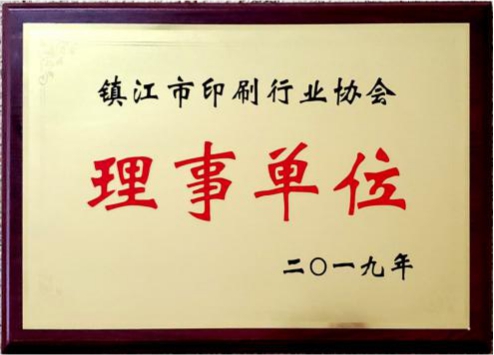 镇江市印刷行业协会
理事单位
二〇一九年